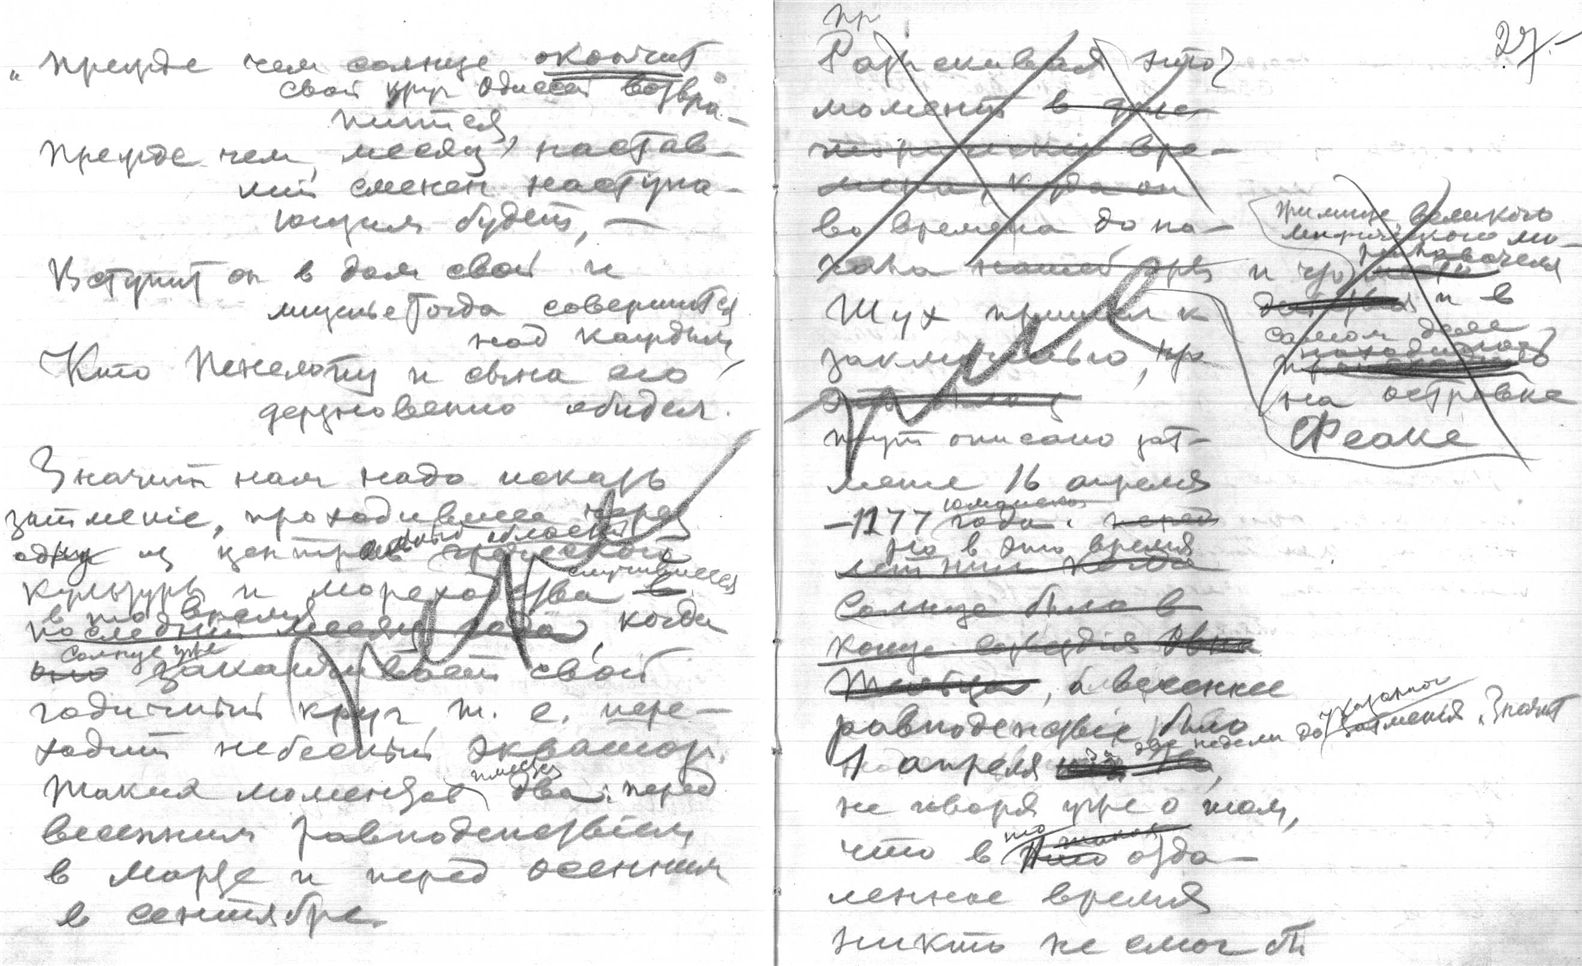 „Прежде чем солнце окончит
свой круг Одиссей возвра-
тится,
Прежде чем месяц, настав-
ший сменен наступа-
ющим будет, —
Вступит он в дом свой и
мщенье тогда совершится
над каждым,
Кто Пенелопу и сына его
дерзновенно обидел.
Значит нам надо искать
затмение, проходившее через
одну из центральных областей греческой
культуры и мореходства в
случившееся
в то время
последний месяц года, когда
солнце уже
оно заканчивает свой
годичный круг, т. е. пере-
ходит небесный экватор.
Таких моментов имеется два: перед
весенним равноденствием
в марте и перед осенним
в сентябре.
27.—
пр
Разыскивая этот
момент в
времена, когда он
во времена до на-
чала нашей эры
Шух пришел к
заключению, что
тут описано зат-
мение 16 апреля
—1177 года. перед
юлианского
Но в это время
летний когда
Солнце было в
конце созвездия Овна
Тельца, а весеннее
равноденствие было
1 апреля
две недели до указанного затмения. Значит
не говоря уже о том,
что в то отда-
ленное время
никто не смог бы
жилище великого
и что
и в
самом деле
находилось
на островке
Феаке